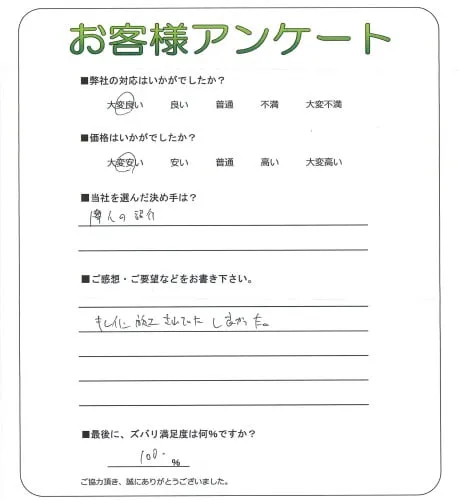 お客様アンケート
■弊社の対応はいかがでしたか？
大変良い 良い 普通 不満 大変不満
■価格はいかがでしたか？
大変安い 安い 普通 高い 大変高い
■当社を選んだ決め手は？
隣人の紹介
■ご感想・ご要望などをお書き下さい。
キレイに施工されて
■最後に、ズバリ満足度は何%ですか？
100 %
ご協力頂き、誠にありがとうございました。